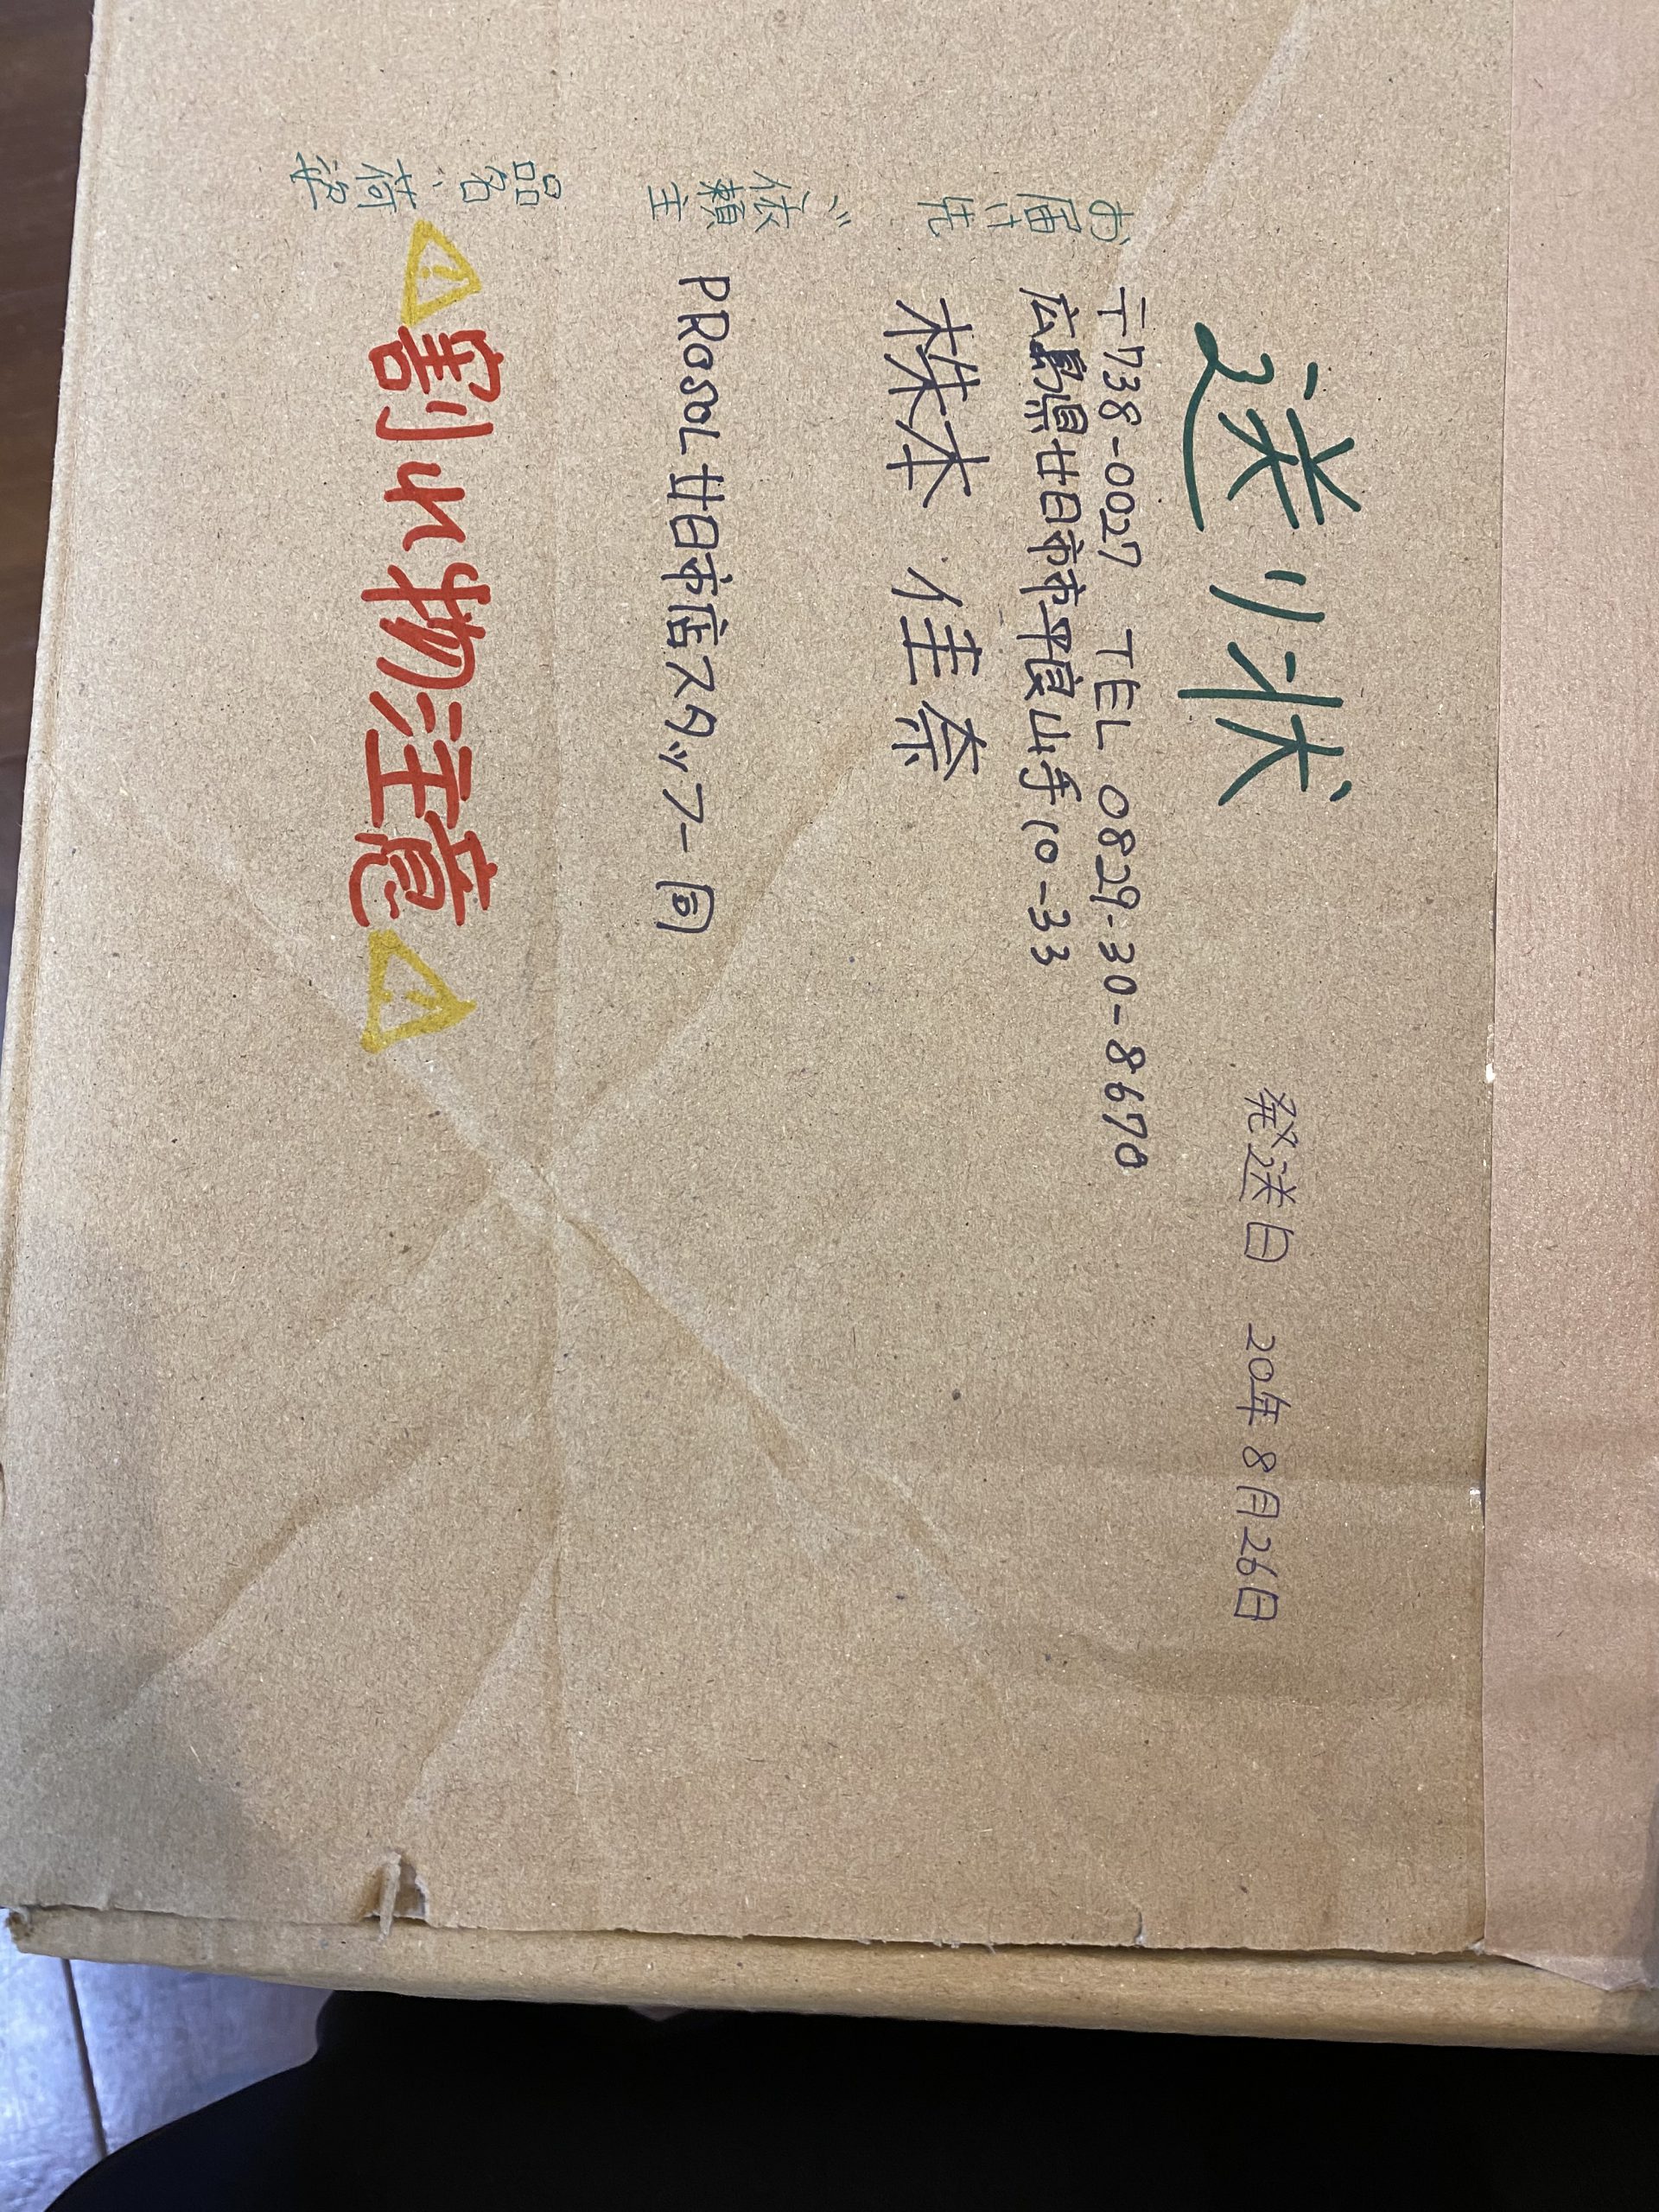 送り状
発送日 20年8月26日
お届け先
〒738-0027 TEL 0829-30-8670
広島県廿日市市平良山手10-33
株本 佳奈
ご依頼主
PRosoL廿日市店スタッフ一同
品名、荷姿
⚠割れ物注意⚠